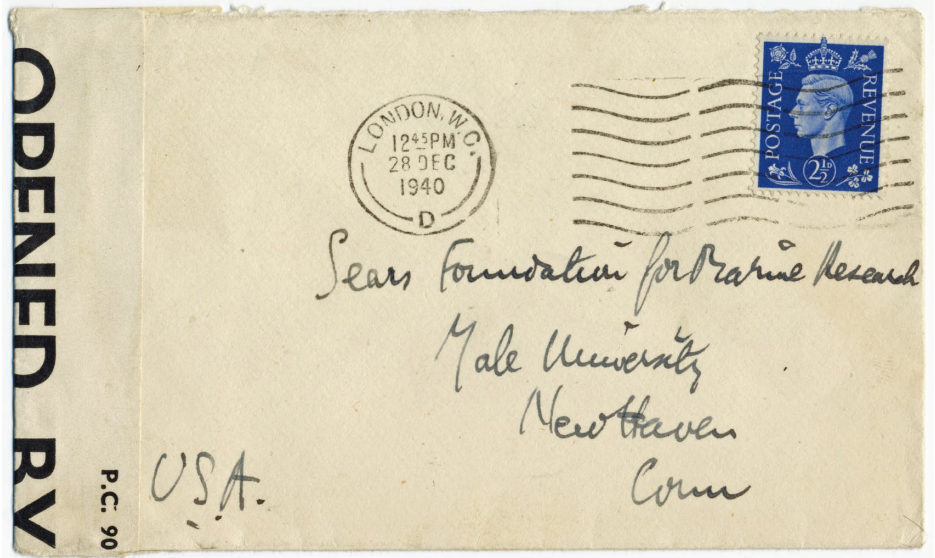 OPENED BY
P.C. 90
LONDON. W.C.
12 45 PM
28 DEC
1940
D
POSTAGE
REVENUE
2½D
Sears Foundation for Marine Research
Yale University
New Haven
Conn
U.S.A.